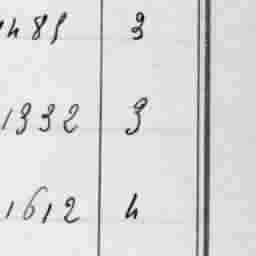 1485 3
1332 3
1612 4